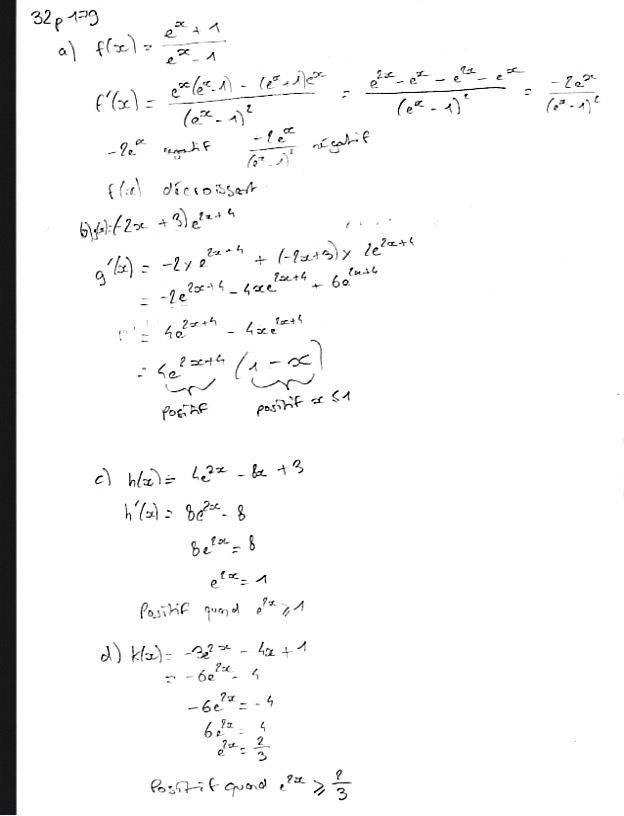 32 p 179
a) f(x) = (e^x + 1)/(e^x - 1)
f'(x) = (e^x(e^x - 1) - (e^x + 1)e^x)/(e^x - 1)^2 = (e^2x - e^x - e^2x - e^x)/(e^x - 1)^2 = (-2e^x)/(e^x - 1)^2
-2e^x negatif (-2e^x)/(e^x - 1)^2 négatif
f(x) décroissant
b) g(x): (-2x + 3)e^(2x+4)
g'(x) = -2 × e^(2x+4) + (-2x+3) × 2e^(2x+4)
= -2e^(2x+4) - 4xe^(2x+4) + 6e^(2x+4)
= 4e^(2x+4) - 4xe^(2x+4)
= 4e^(2x+4) (1 - x)
positif positif x ≤ 1
c) h(x) = 4e^2x - 8x + 3
h'(x) = 8e^2x - 8
8e^2x = 8
e^2x = 1
Positif quand e^2x ≥ 1
d) k(x) = -3e^2x - 4x + 1
= -6e^2x - 4
-6e^2x = -4
6e^2x = 4
e^2x = 2/3
Positif quand e^2x ≥ 2/3